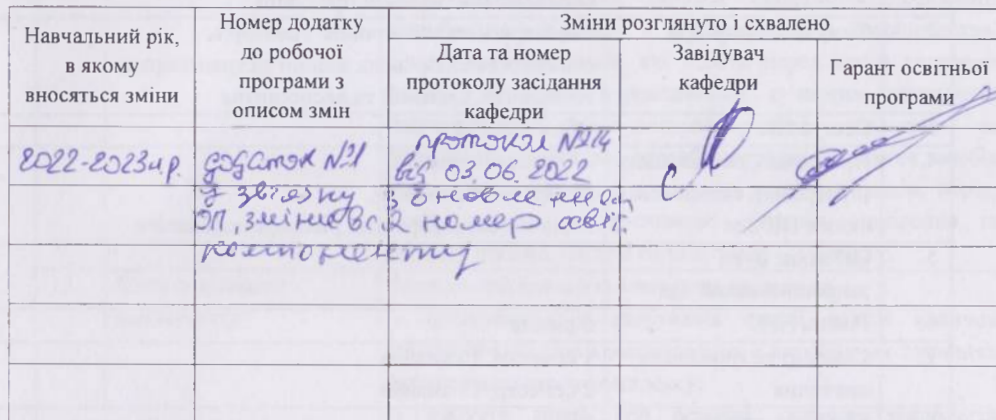 Навчальний рік,
в якому
вносяться зміни
Номер додатку
до робочої
програми з
описом змін
Зміни розглянуто і схвалено
Дата та номер
протоколу засідання
кафедри
Завідувач
кафедри
Гарант освітньої
програми
2022-2023н.р.
додаток №1
протокол №14
від 03.06.2022
у зв'язку з оновленням
ОП, змінився номер освіт.
компоненту